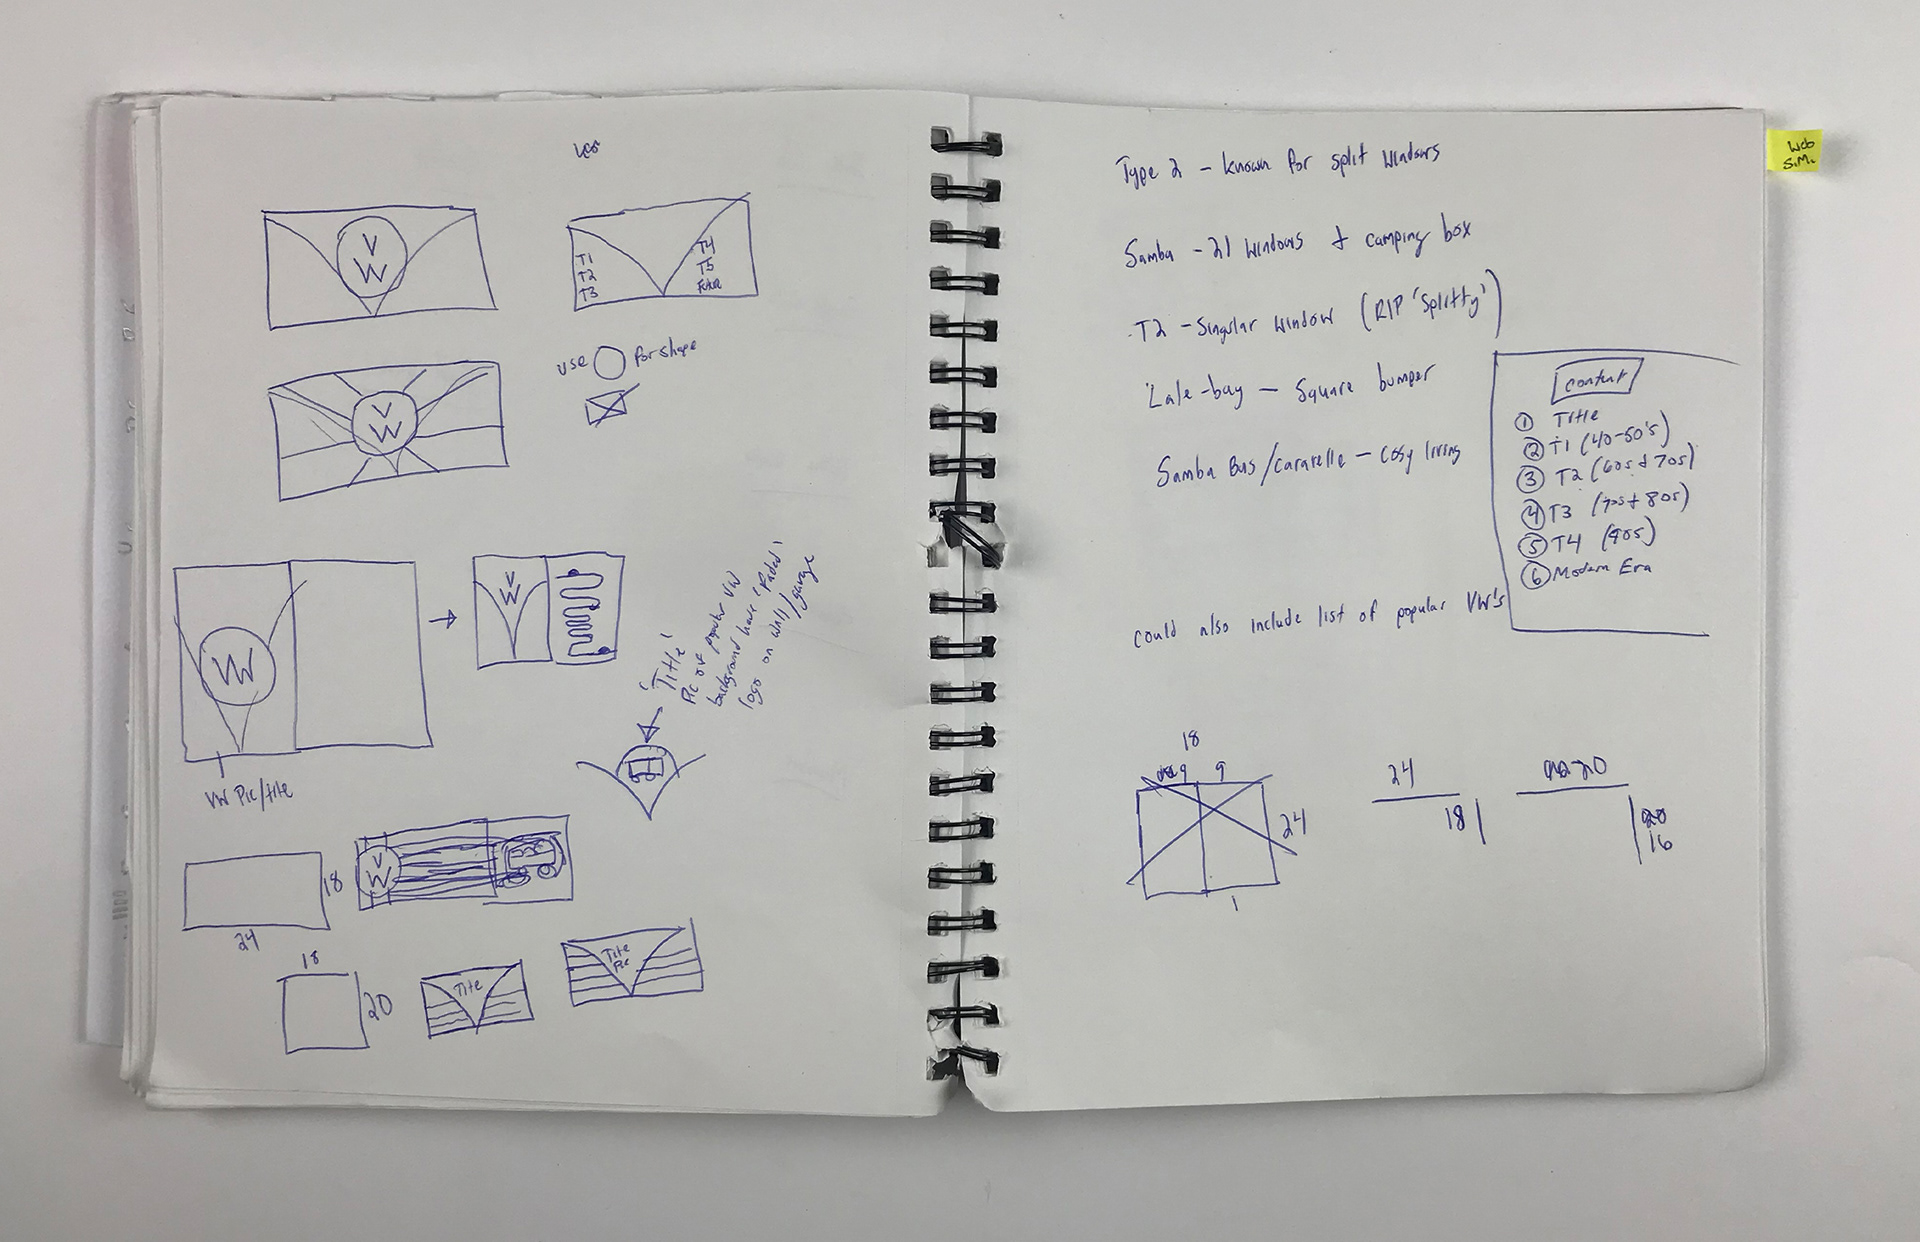 V
W
T1
T2
T3
T4
T5
Future
use
for shape
V
W
VW
VW Pic/title
V
W
'Title'
Pic of popular VW
background have 'faded'
logo on wall/garage
18
24
V
W
18
20
Title
Title
Pic
Type 2 - known for split windows
Samba - 21 windows + camping box
T2 - Singular window (RIP 'Splitty')
'Late-bay - Square bumper
Samba Bus/caravelle - cosy living
content
1 Title
2 T1 (40-50's)
3 T2 (60s + 70s)
4 T3 (70s + 80s)
5 T4 (90s)
6 Modern Era
could also include list of popular VW's
18
9 9
24
1
24
18
20
16
Web
S.M.